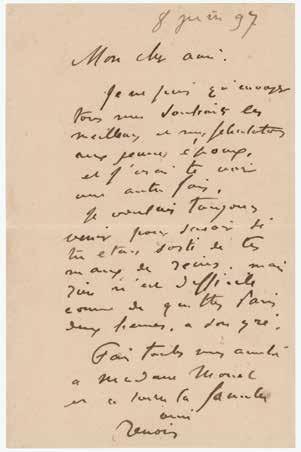 8 juin 97
Mon cher ami.
Je ne puis qu'envoyer
tous mes souhaits les
meilleurs et mes félicitations
aux jeunes époux,
et j'irai te voir
une autre fois,
Je voulais toujours
venir pour savoir si
tu étais sorti de tes
maux de reins, mais
rien n'est difficile
comme de quitter Paris
deux heures, a son gré.
Fais toutes mes amitiés
a Madame Monet
et a toute la famille
ami
Renoir